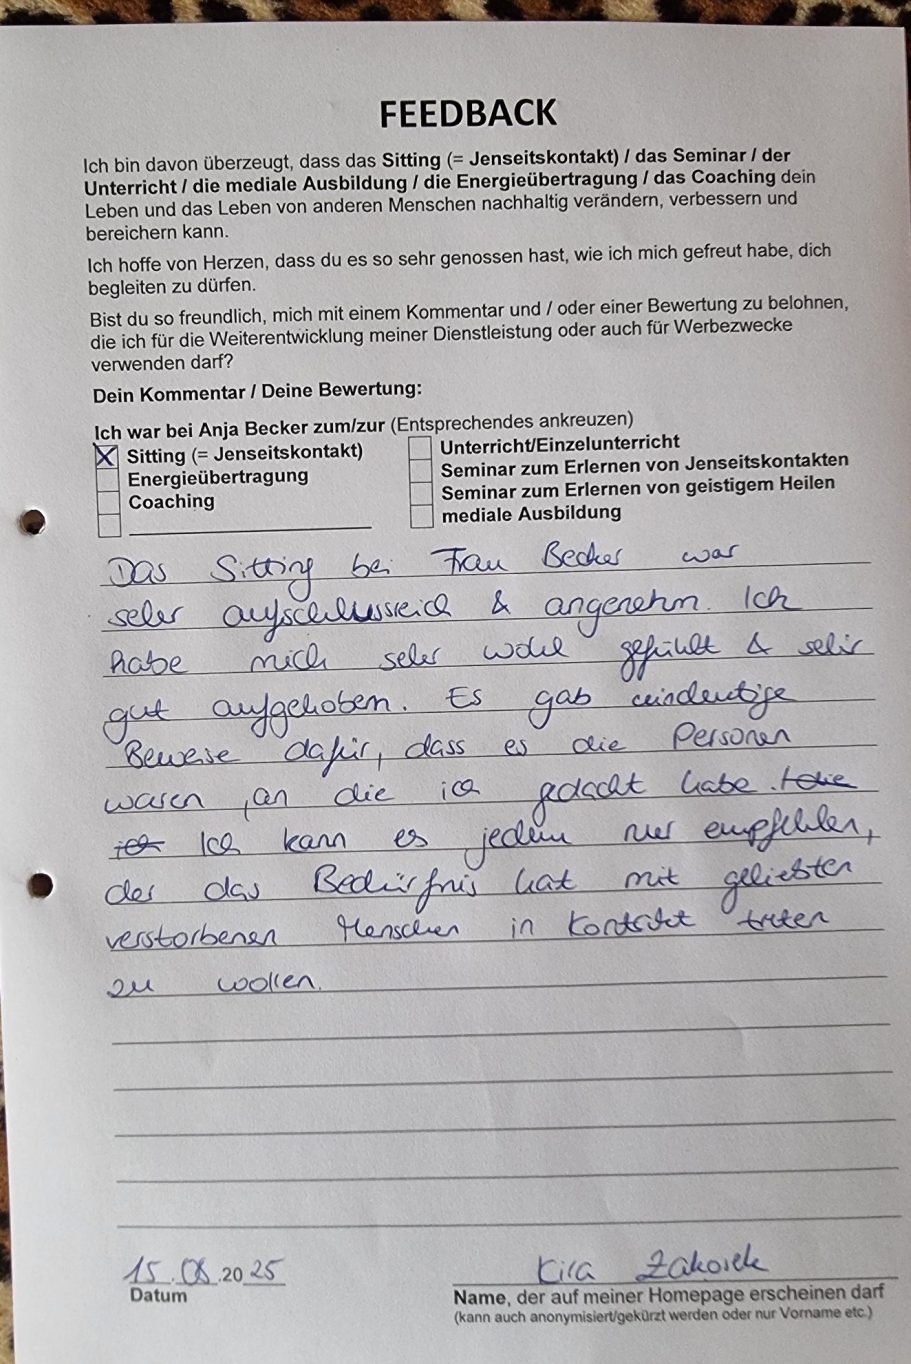 FEEDBACK
Ich bin davon überzeugt, dass das Sitting (= Jenseitskontakt) / das Seminar / der
Unterricht / die mediale Ausbildung / die Energieübertragung / das Coaching dein
Leben und das Leben von anderen Menschen nachhaltig verändern, verbessern und
bereichern kann.
Ich hoffe von Herzen, dass du es so sehr genossen hast, wie ich mich gefreut habe, dich
begleiten zu dürfen.
Bist du so freundlich, mich mit einem Kommentar und / oder einer Bewertung zu belohnen,
die ich für die Weiterentwicklung meiner Dienstleistung oder auch für Werbezwecke
verwenden darf?
Dein Kommentar / Deine Bewertung:
Ich war bei Anja Becker zum/zur (Entsprechendes ankreuzen)
X Sitting (= Jenseitskontakt)
Energieübertragung
Coaching
Unterricht/Einzelunterricht
Seminar zum Erlernen von Jenseitskontakten
Seminar zum Erlernen von geistigem Heilen
mediale Ausbildung
Das Sitting bei Frau Becker war
sehr aufschlussreich & angenehm. Ich
habe mich sehr wohl gefühlt & sehr
gut aufgehoben. Es gab eindeutige
Beweise dafür, dass es die Personen
waren, an die ich gedacht habe.
Ich kann es jedem nur empfehlen,
der das Bedürfnis hat mit geliebten
verstorbenen Menschen in Kontakt treten
zu wollen.
15.08.2025
Datum
Kira
Name, der auf meiner Homepage erscheinen darf
(kann auch anonymisiert/gekürzt werden oder nur Vorname etc.)